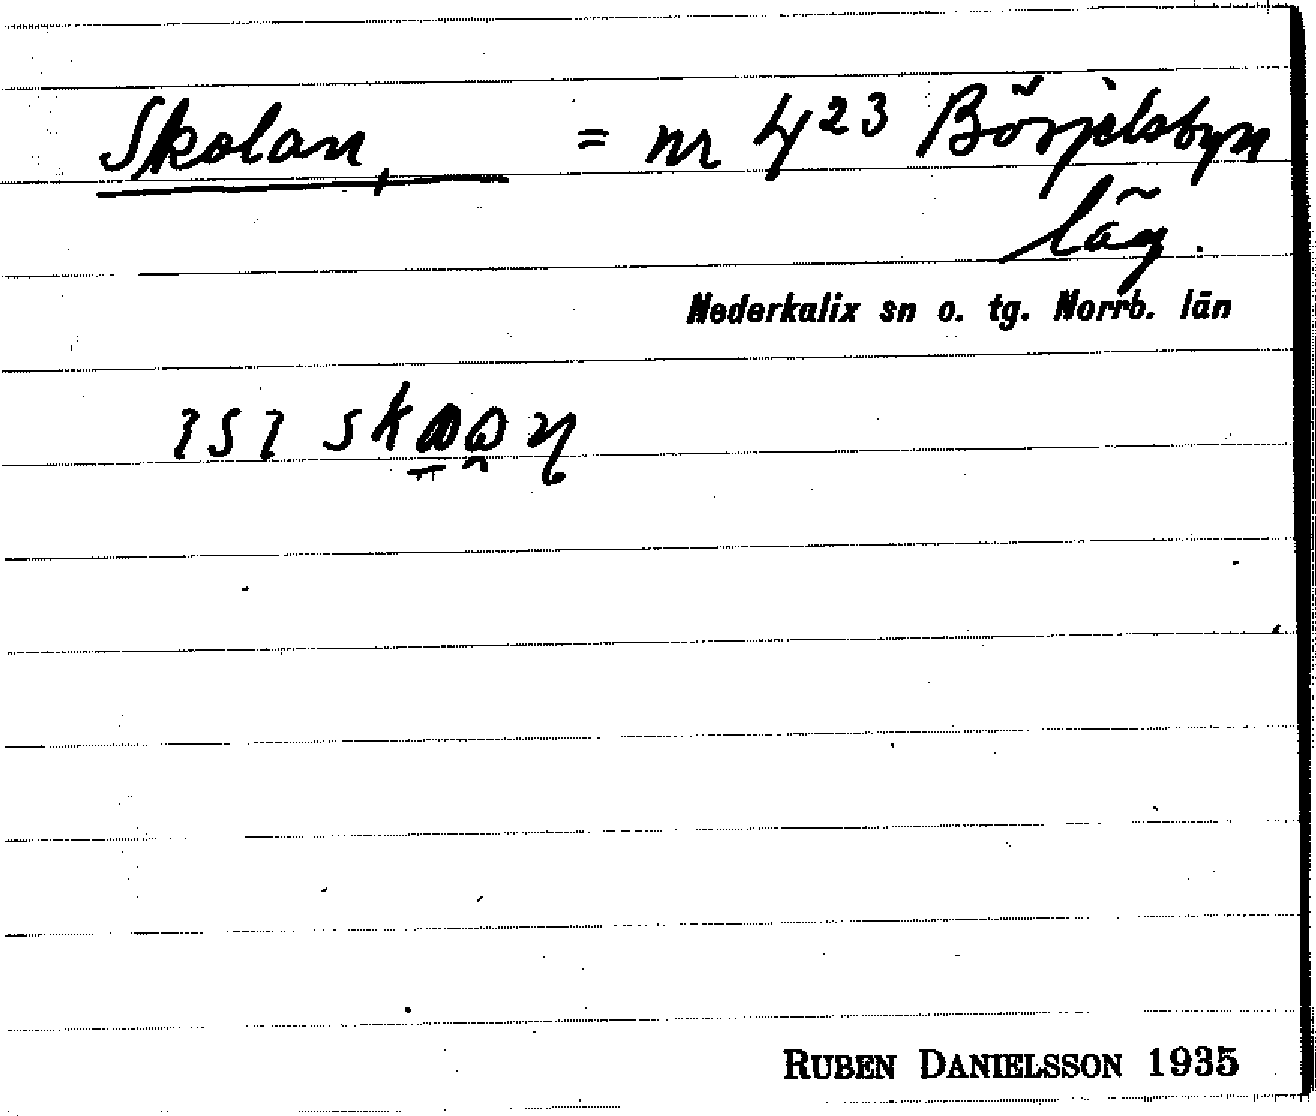 Skolan, = nr 4²³ Börjelsbyn
läg.
Nederkalix sn o. tg. Norrb. län
RUBEN DANIELSSON 1935